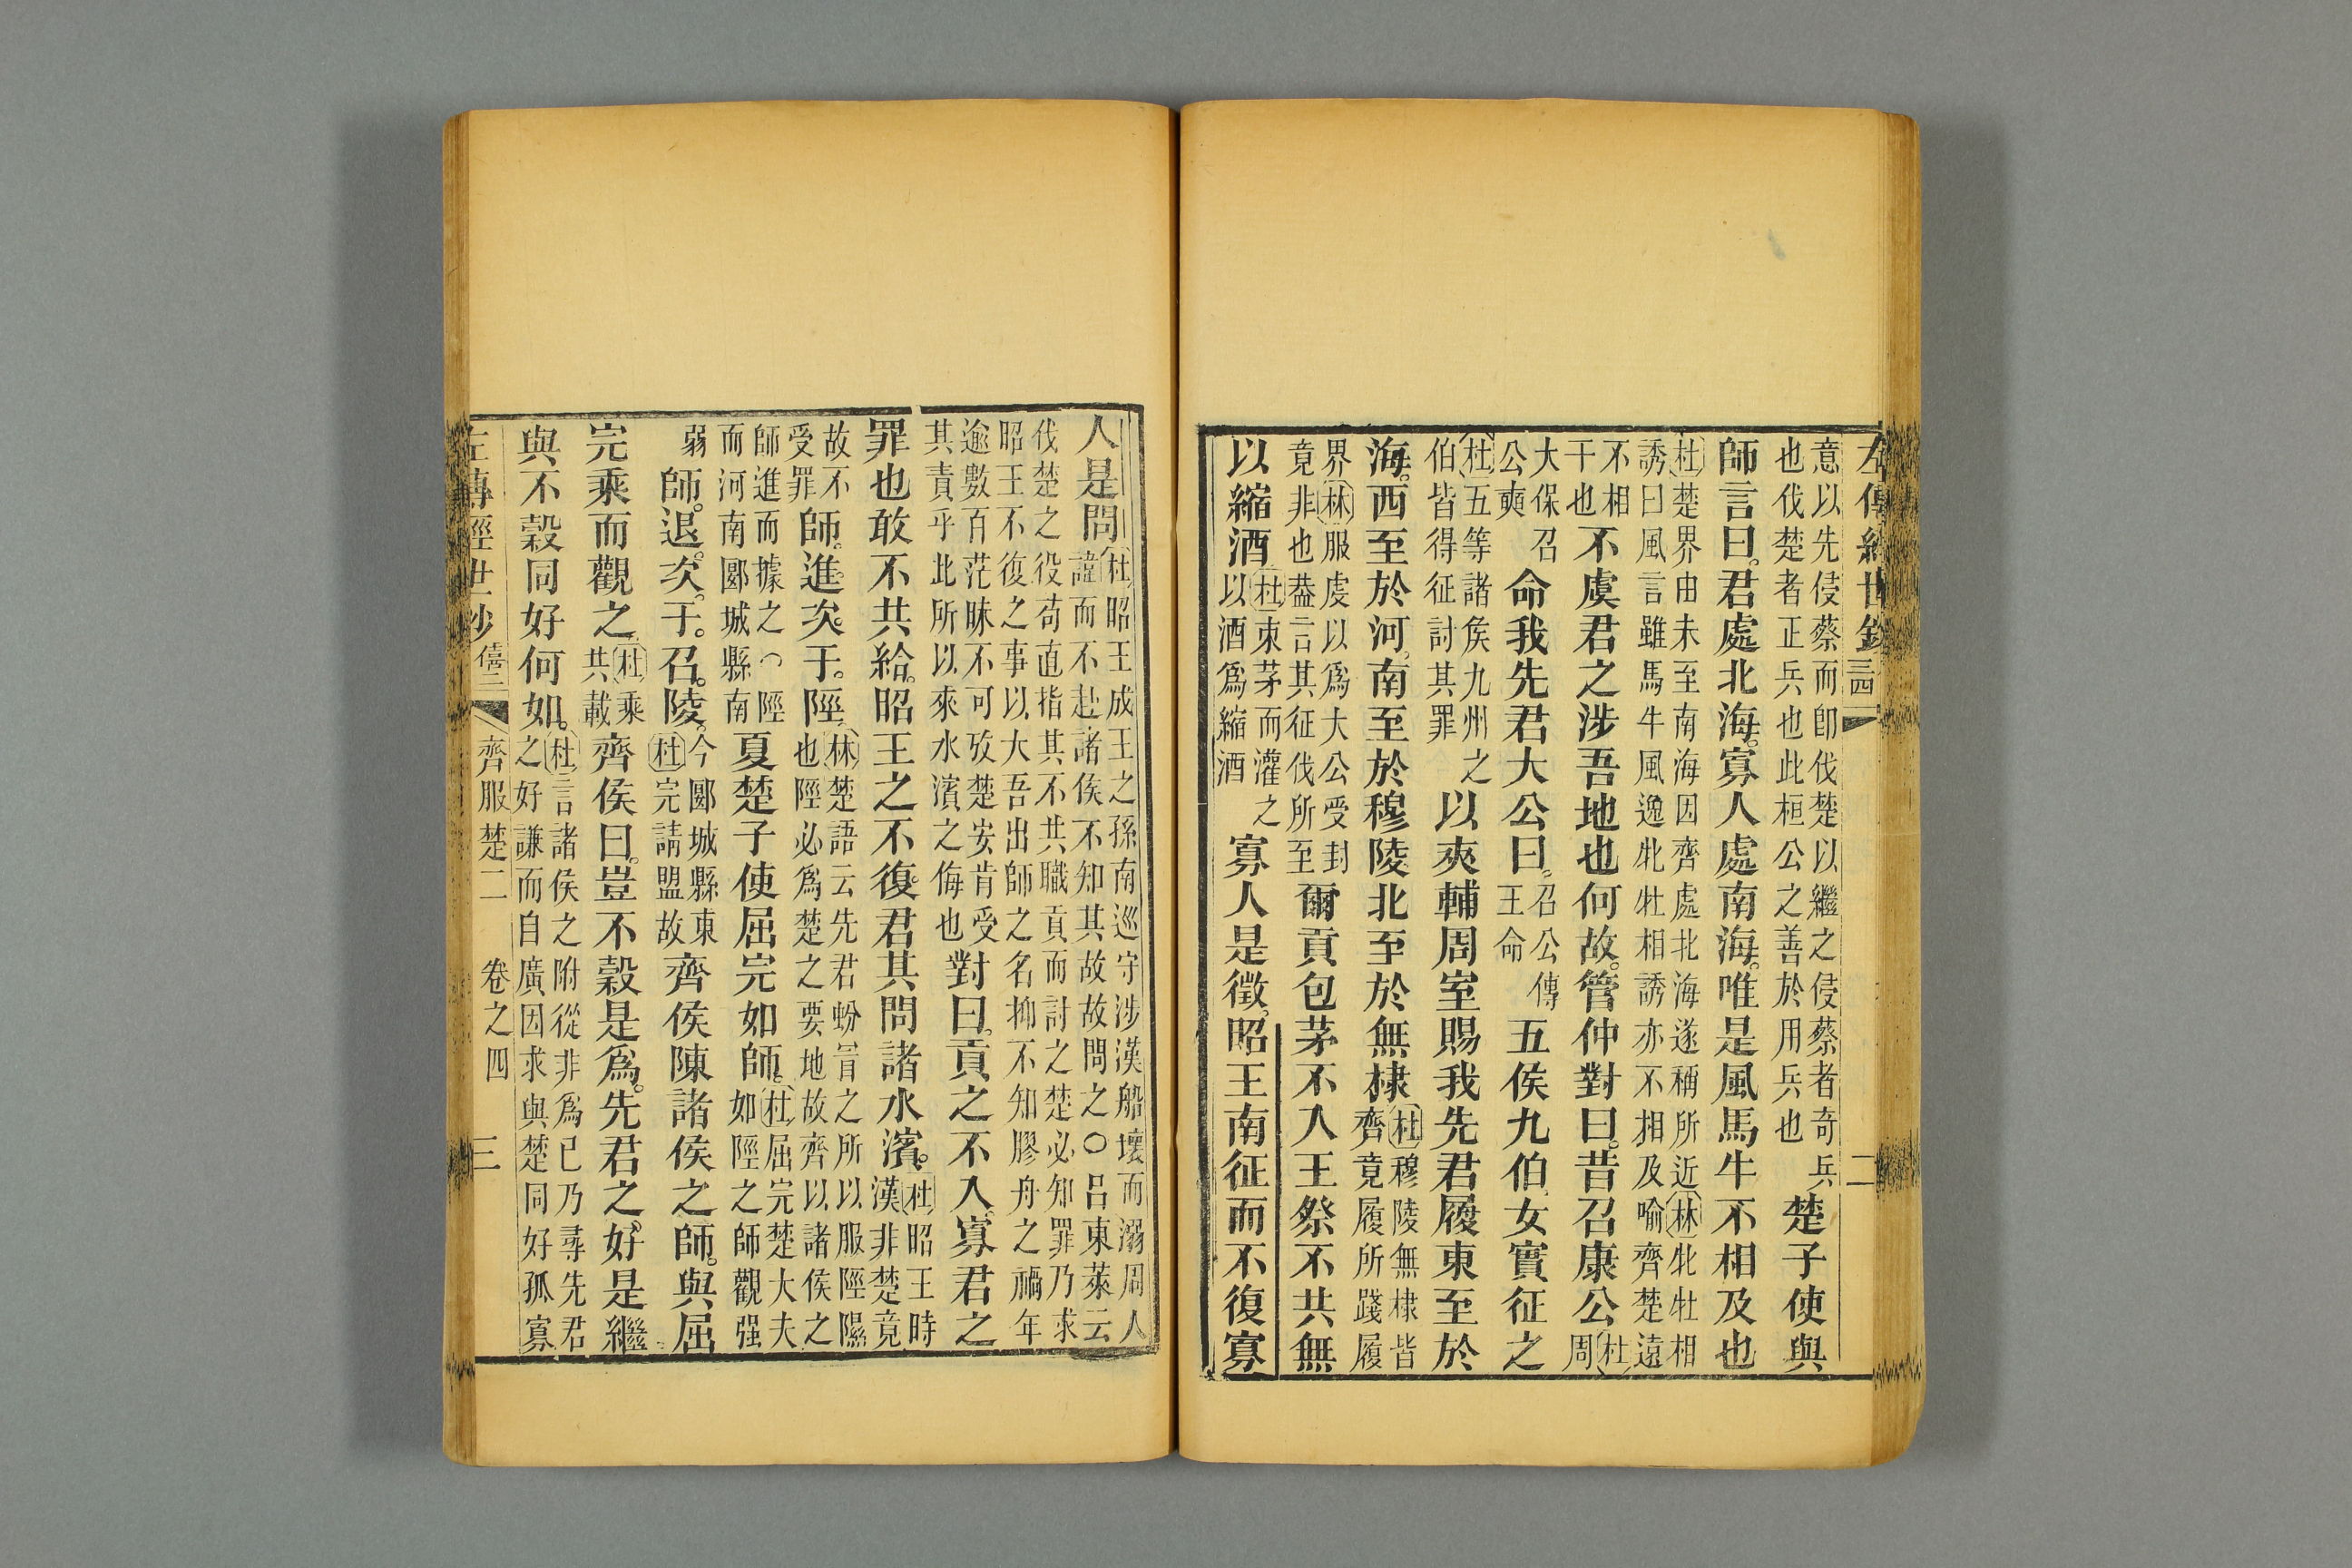 左傳經世鈔
三四
二
意以先侵蔡而卽伐楚以繼之侵蔡者奇兵
也伐楚者正兵也此桓公之善於用兵也
楚子使與
師言曰君處北海寡人處南海唯是風馬牛不相及也
杜楚界由未至南海因齊處北海遂稱所近林牝牡相
誘曰風言雖馬牛風逸牝牡相誘亦不相及喻齊楚遠
不相
干也
不虞君之涉吾地也何故管仲對曰昔召康公
杜
周
大保召
公奭
命我先君大公曰
召公傳
王命
五侯九伯女實征之
杜五等諸侯九州之
伯皆得征討其罪
以夾輔周室賜我先君履東至於
海西至於河南至於穆陵北至於無棣
杜穆陵無棣皆
齊竟履所踐履
界林服虔以爲大公受封
竟非也葢言其征伐所至
爾貢包茅不入王祭不共無
以縮酒
杜束茅而灌之
以酒爲縮酒
寡人是徵昭王南征而不復寡
人是問
杜昭王成王之孫南巡守涉漢船壞而溺周人
諱而不赴諸侯不知其故故問之○呂東萊云
伐楚之役苟直指其不共職貢而討之楚必知罪乃求
昭王不復之事以大吾出師之名抑不知膠舟之禍年
逾數百茫昧不可攷楚安肯受
其責乎此所以來水濱之侮也
對曰貢之不入寡君之
罪也敢不共給昭王之不復君其問諸水濱
杜昭王時
漢非楚竟
故不
受罪
師進次于陘
林楚語云先君蚡冒之所以服陘隰
也陘必爲楚之要地故齊以諸侯之
師進而據之○陘
而河南郾城縣南
夏楚子使屈完如師
杜屈完楚大夫
如陘之師觀强
弱
師退次于召陵
今郾城縣東
杜完請盟故
齊侯陳諸侯之師與屈
完乘而觀之
杜乘
共載
齊侯曰豈不穀是爲先君之好是繼
與不穀同好何如
杜言諸侯之附從非爲已乃尋先君
之好謙而自廣因求與楚同好孤寡
左傳經世鈔
僖二
齊服楚二
卷之四
三